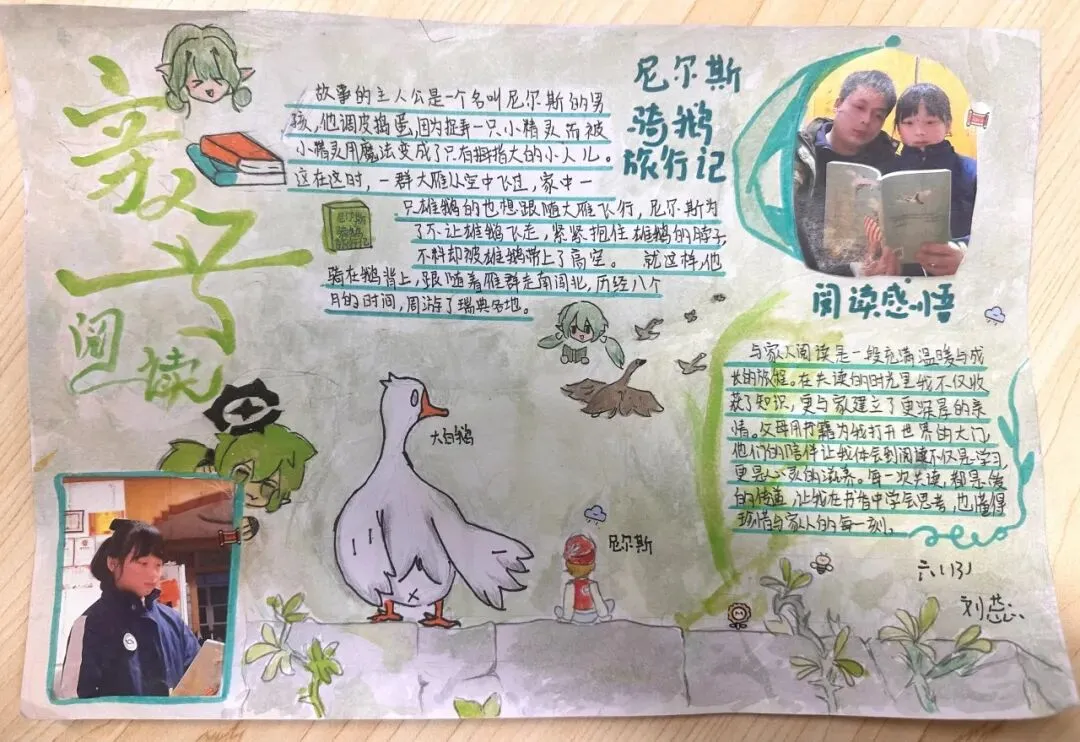 亲子
阅读
尼尔斯
骑鹅
旅行记
故事的主人公是一个名叫尼尔斯的男
孩,他调皮捣蛋,因为捉弄一只小精灵而被
小精灵用魔法变成了只有拇指大的小人儿。
这在这时,一群大雁从空中飞过,家中一
只雄鹅的也想跟随大雁飞行,尼尔斯为
了不让雄鹅飞走,紧紧抱住雄鹅的脖子,
不料却被雄鹅带上了高空。 就这样,他
骑在鹅背上,跟随着雁群走南闯北,历经八个
月的时间,周游了瑞典各地。
尼尔斯
骑鹅
旅行记
大白鹅
尼尔斯
阅读感悟
与家人阅读是一段充满温暖与成
长的旅程。在共读的时光里我不仅收
获了知识,更与家建立了更深厚的亲
情。父母用书籍为我打开世界的大门,
他们的陪伴让我体会到阅读不仅是学习,
更是心灵的滋养。每一次共读,都是爱
的传递,让我在书香中学会思考,也懂得
珍惜与家人的每一刻。
六(13)
刘蕊